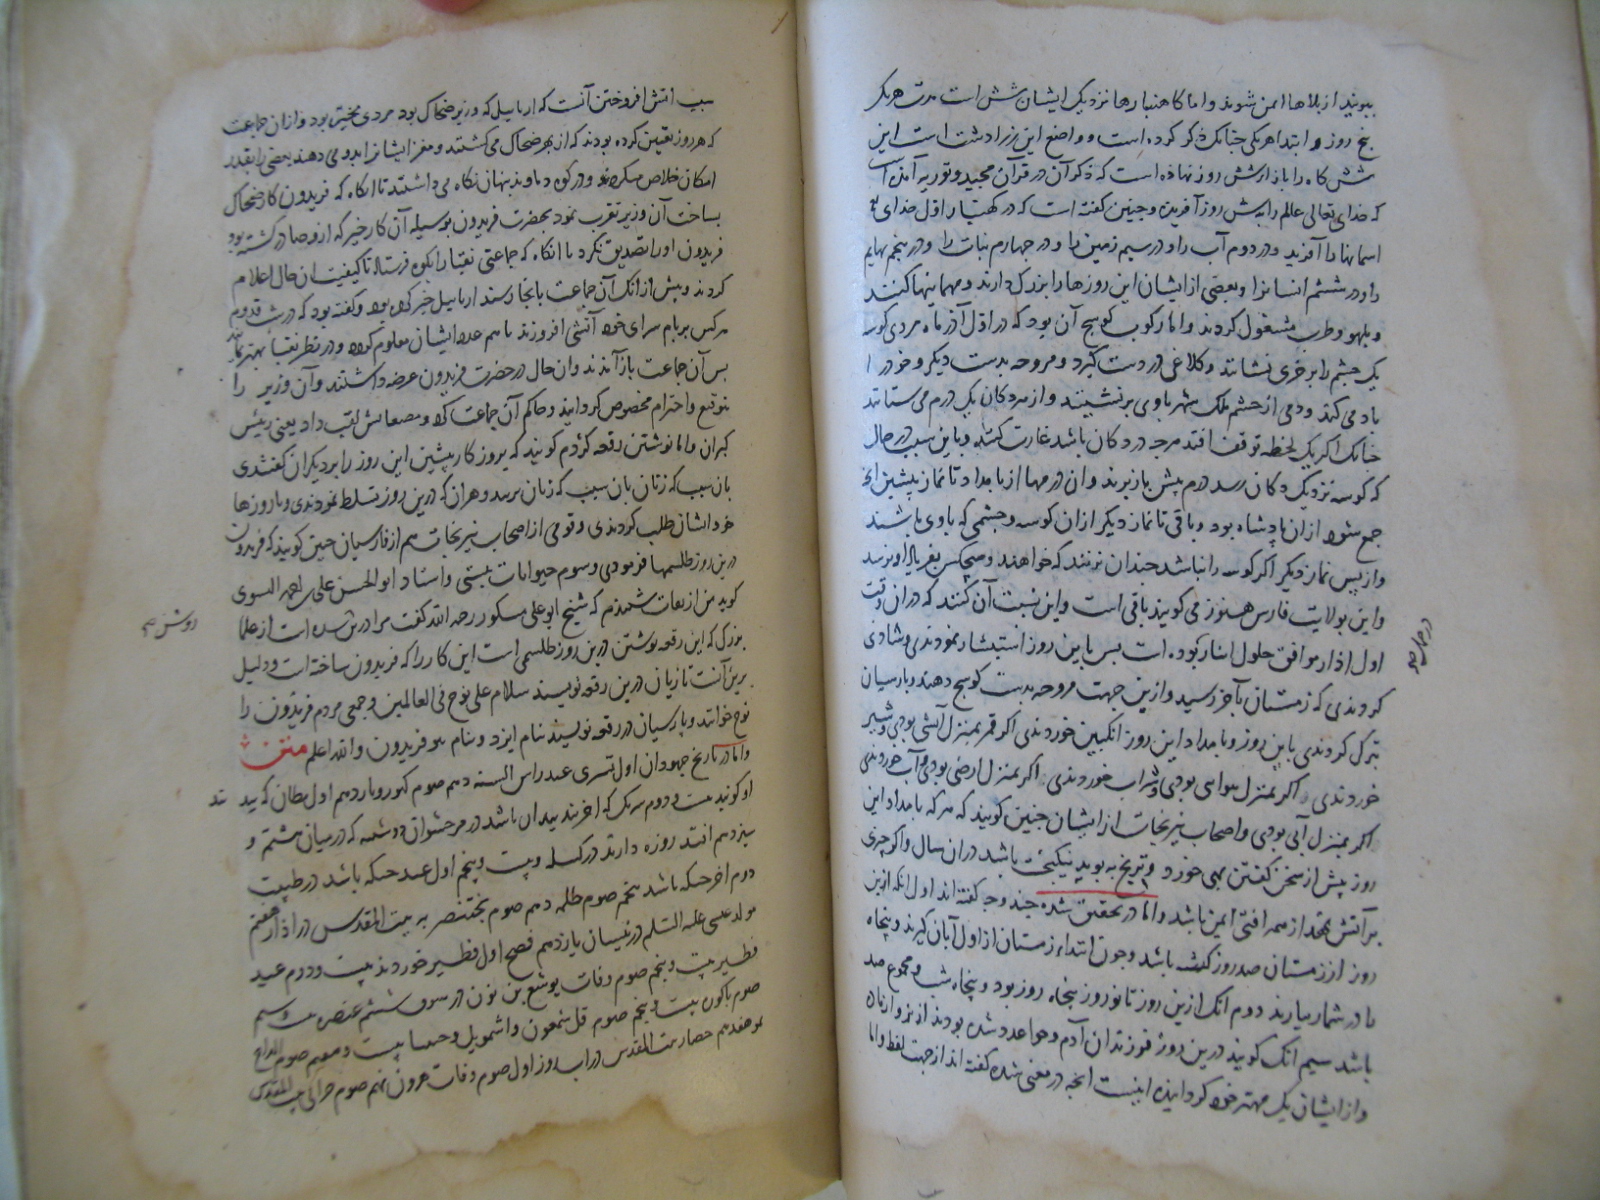 ببویند از بلاها ایمن شوند و اما کاهنبارها نزدیک ایشان شش است مدت هر یک
پنج روز و ابتدا هر یکی چنانک ذکر کرده است و واضع این زرادشت است این
شش کاه را بازا شش روز نهاده است که ذکر آن در قرآن مجید و توریه آمده است
که خدای تعالی عالم را بشش روز آفرید و چنین کفته است که در کهنبار اول خدای تع
اسمانها را آفرید و در دوم آب را و در سیم زمین را و در چهارم نبات را و در پنجم بهایم
را و در ششم انسانرا و بعضی از ایشان این روزها را بزرک دارند و مهمانیها کنند
و بلهو و طرب مشغول کردند و اما رکوب کوسج آن بود که در اول آذر ماه مردی کوسه
یک چشم را بر خری نشانند و کلاغی در دست کیرد و مروحه بدست دیکر و خود را
باد می کند و دمی از حشم ملک شهر باوی برنشینند و از هر دکان یک درم می ستانند
چنانک اکر یک لحظه توقف افتد هرچه در دکان باشد غارت کنند و باین سبب در حال
که کوسه نزدیک دکان رسد درم پیش باز برند و ان درمها از بامداد تا نماز پیشین انچه
جمع شود از ان پادشاه بود و باقی تا نماز دیکر از ان کوسه و حشمی که باوی باشند
و از پس نماز دیکر اکر کوسه را بیابند چندان بزنند که خواهند و هیچکس بفریاد او نرسد
و این بولایت فارس هنوز می کویند باقی است و این نسبت آن کنند که در ان وقت
اول اذار موافق حلول ... بوده است پس باین روز استبشار نمودندی و شادی
کردندی که زمستان بآخر رسید و ازین جهت مروحه بدست کوسج دهند و پارسیان
تبرک کردندی باین روز و بامداد این روز انکبین خوردندی اکر قمر بمنزل آتشی بودی و شیر
خوردندی اکر بمنزل هوایی بودی و شراب خوردندی اکر بمنزل ارضی بودی و آب خوردندی
اکر بمنزل آبی بودی و اصحاب نیرنجات از ایشان چنین کویند که هر که بامداد این
روز پیش از سخن کفتن بهی خورد و ترنج ببوید نیکبخت باشد در ان سال و اکر چیزی
بر آتش نهد از همه آفتی ایمن باشد و اما در تحقیق سده چند وجه کفته اند اول آنکه ازین
روز از زمستان صد روز کذشته باشد و چون ابتداء زمستان از اول آبان کیرند و پنجاه
را در شمار نیارند دوم انک ازین روز تا نوروز پنجاه روز بود و پنجاه شب و مجموع صد
باشد سیم انک کویند درین روز فرزندان آدم و حوا عدد شده بودند از نر و از ماده
و از ایشان یک مهتر خود کردانیده اینست انچه در معنی سده کفته اند از جهت لفظ و اما
در حال صح
سبب آتش افروختن آنست که ارماییل که وزیر ضحاک بود مردی مخیر بود و از ان جماعت
که هر روز تعیین کرده بودند که از بهر ضحاک می کشتند و مغز ایشانرا بدو می دهند بعضی را بقدر
امکان خلاص میکردند و در کوه دماوند پنهان نکاه می داشتند تا انکاه که فریدون کار ضحاک
بساخت آن وزیر تقرب نمود بحضرت فریدون بوسیله آن کار خیر که ازو صادر کشته بود
فریدون او را تصدیق نکرد تا انکاه که جماعتی نقبا را بکوه فرستاد تا کیفیت ان حال اعلام
کردند و پیش از انک آن جماعت بانجا رسند ارماییل خبر کرده بود و کفته بود که در شب قدوم
هر کس بر بام سرای خود آتشی افروزند تا هم عدد ایشان معلوم کردد و در نظر نقبا بهتر نمایند
پس آن جماعت باز آمدند و ان حال در حضرت فریدون عرضه داشتند و آن وزیر را
بتوقیع و احترام مخصوص کردانید و حاکم آن جماعت کرد و مصمغانش لقب داد یعنی رئیس
کبران و اما نوشتن رقعه کژدم کویند که بروزکار پیشین این روز را بر دیکران کفتندی
بان سبب که زنان بان سبب که زنان بر مردان که درین روز تسلط نمودندی و بارزوها
خود ایشان طلب کردندی و قومی از اصحاب نیرنجات هم از فارسیان چنین کویند که فریدون
درین روز طلسمها فرمودی و سموم حیوانات ببستی و استاد ابو الحسن علی بن احمد النسوی
کوید من از ثقات شنیدم که شیخ ابو علی مسکویه رحمه الله کفت مرا درست شده است از علما
بزرک که این رقعه نوشتن درین روز طلسمی است این کار را که فریدون ساخته است و دلیل
برین آنست تا زیان درین رقعه نویسند سلام علی نوح فی العالمین و جمعی مردم فریدون را
نوح خوانند و پارسیان در رقعه نویسند بنام ایزد و بنام نیو فریدون و الله اعلم متن
و اما در تاریخ جهودان اول تسری عید راس السنه دهم صوم کبور پانزدهم اول مظال که بید
او کویند بیست و دوم تبریک که آخر عید ایشان باشد در مرحشوان دوشنبه که در میان هشتم و
سیزدهم افتد روزه دارند در کسلیو بیست و پنجم اول عید حنکه باشد در طیبت
دوم آخر حنکه باشد پنجم صوم ظلمه دهم صوم بختنصر به بیت المقدس در اذار هفتم
مولد عیسی علیه السلم در نیسان پانزدهم فصح اول فطیر خوردند بیست و دوم عید
فطیر بیست و پنجم صوم وفات یوشع بن نون در سیون ششم عنصره بیست و سیم
صوم باکوره بیست و پنجم صوم قتل شمعون و اشمویل و حنینا بیست و هفتم صوم
هفدهم حصار بیت المقدس در اب روز اول صوم وفات هرون نهم صوم خرابی بیت المقدس